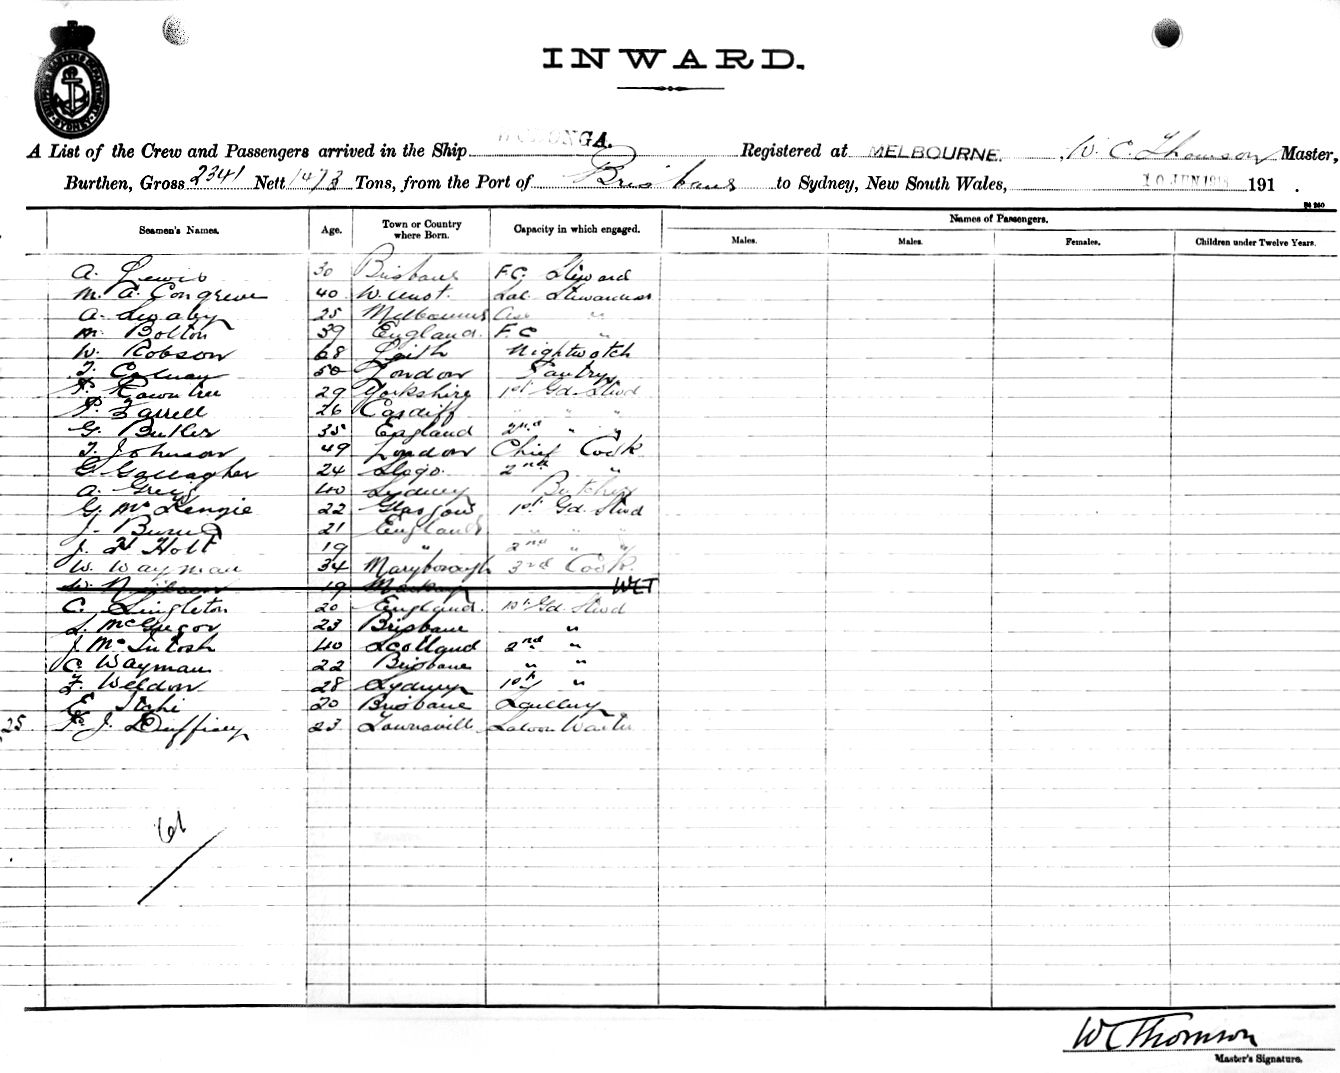 INWARD.
A List of the Crew and Passengers arrived in the Ship Registered at MELBOURNE. W. C. Thomson Master,
Burthen, Gross 2341 Nett 1473 Tons, from the Port of Brisbane to Sydney, New South Wales, 10 JUN 1918 191 .
Seamen's Names. Age. Town or Country where Born. Capacity in which engaged. Names of Passengers.
Males. Males. Females. Children under Twelve Years.
A. Lewis 30 Brisbane F.C. Steward
M. A. Congreve 40 Stewardess
A. 25 Melbourne "
M. Bolton 39 England. F.C "
W. Robson 68 Leith Nightwatch
T. 50 London Pantry
F. Rowntree 29 Yorkshire 1st Gd. Stwd
P. Farrell 26 Cardiff " " "
G. Butler 35 England 2nd " "
T. Johnson 49 London Chief Cook
G. Gallagher 24 Sligo. 2nd "
A. Grey 40 Sydney Butcher
G. McKenzie 22 Glasgow 1st Gd. Stwd
J. 21 England " " "
J. H Holt 19 " 2nd " "
W. Wayman 34 Maryborough 3rd Cook.
W. 19 Mackay WCT
C. Singleton 20 England. 1st Gd. Stwd
S. McGregor 23 Brisbane "
J. McIntosh 40 Scotland 2nd "
C Wayman 22 Brisbane " "
F. Weldon 28 Sydney 1st "
E 20 Brisbane Scullery
25 F. J. Duffney 23 Townsvill Saloon Waiter
61
WCThomson
Master's Signature.